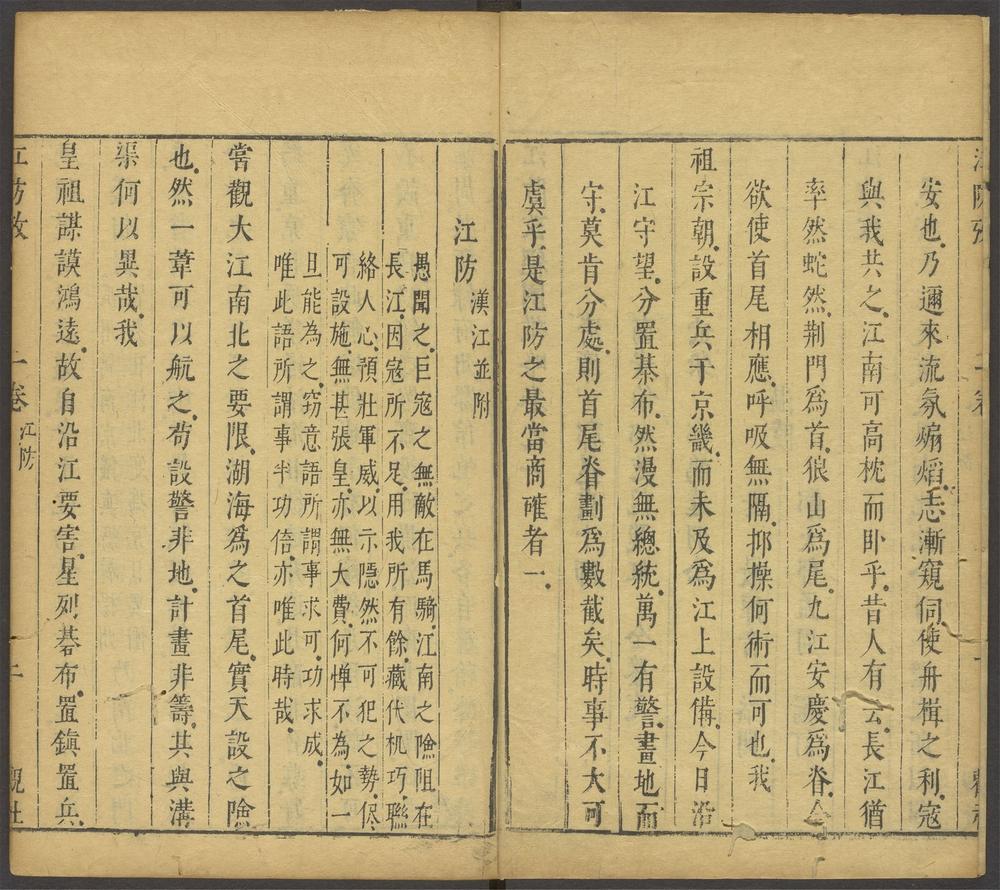 安也乃邇來流氛煽熖志漸窺伺使舟楫之利寇
與我共之江南可高枕而卧乎昔人有云長江猶
率然蛇然荆門爲首狼山爲尾九江安慶爲脊今
欲使首尾相應呼吸無隔抑操何術而可也我
祖宗朝設重兵于京畿而未及爲江上設備今日沿
江守望分置棊布然漫無總統萬一有警畫地而
守莫肯分處則首尾脊劃爲數截矣時事不大可
虞乎是江防之最當商確者一
江防 漢江並附
愚聞之巨寇之無敵在馬騎江南之險阻在
長江因寇所不足用我所有餘藏代机巧聯
絡人心預壯軍威以示隱然不可犯之勢侭
可設施無甚張皇亦無大費何惮不為如一
旦能為之窃意語所謂事求可功求成
唯此語所謂事半功倍亦唯此時哉
嘗觀大江南北之要限湖海爲之首尾實天設之險
也然一葦可以航之苟設警非地計畫非籌其與溝
渠何以異哉我
皇祖謀謨鴻遠故自沿江要害星列碁布置鎮置兵
江防攷 一卷 江防 二